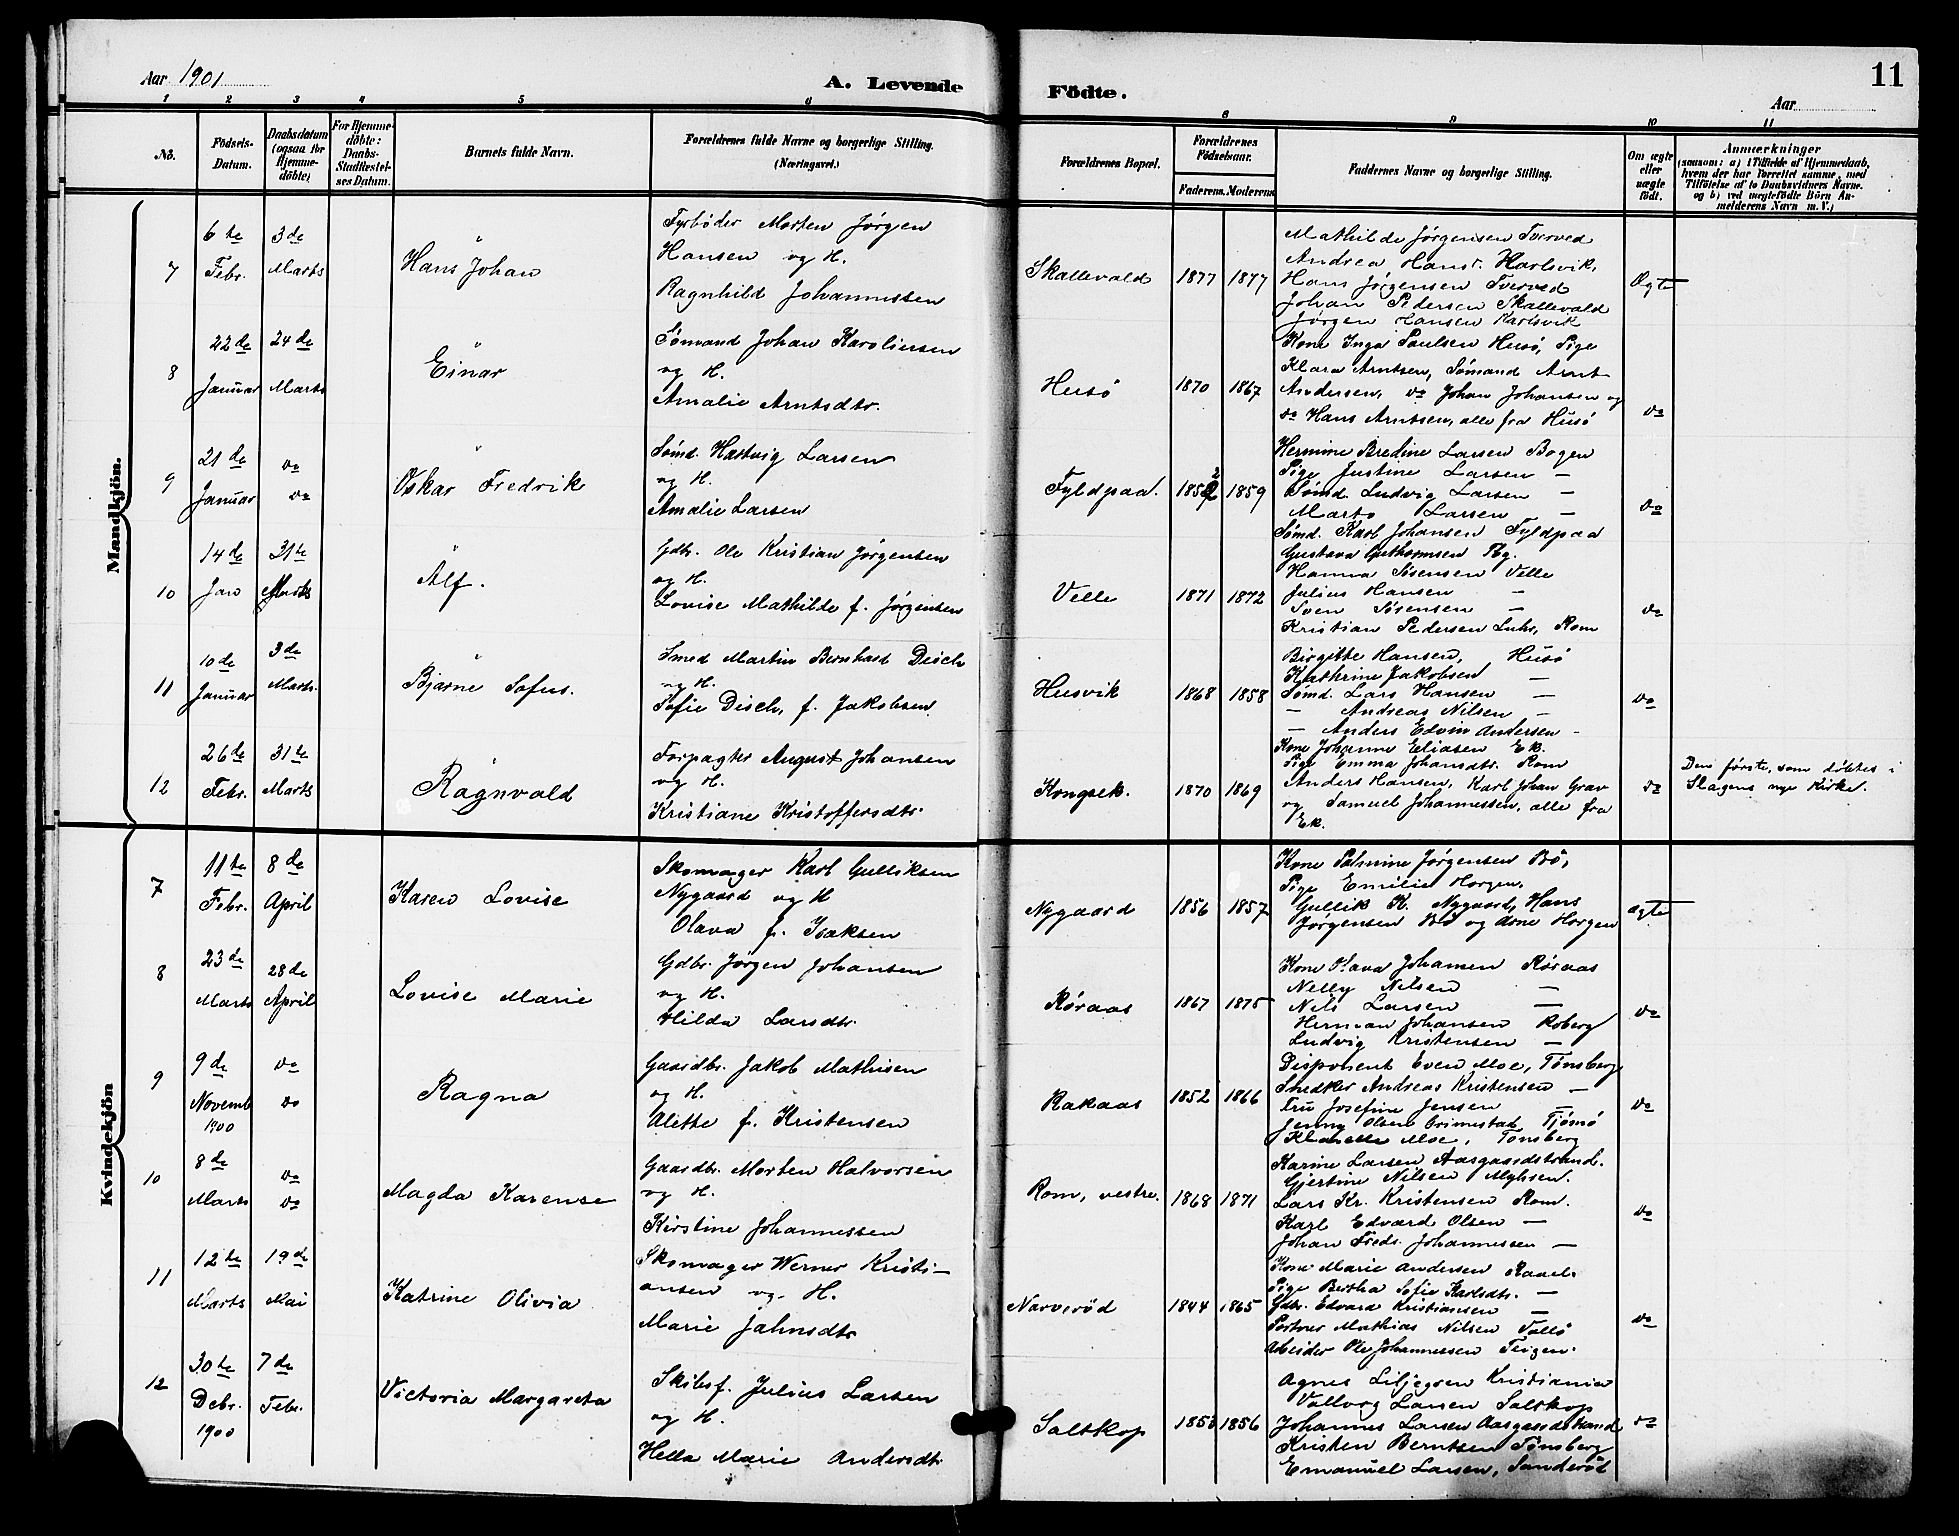 Aar 1901
A. Levende Födte.
11
Aar
1 2 3 4 5 6 8 9 10 11
No.
Födsels-
Datum.
Daabsdatum
(ogsaa for
Hjemme-
döbte)
For Hjemme-
döbte:
Daabs-
Stadfæstel-
ses Datum.
Barnets fulde Navn.
Forældrenes fulde Navne og borgerlige Stilling.
(Næringsvei.)
Forældrenes Bopæl.
Forældrenes
Födselsaar.
Faderens. Moderens.
Faddernes Navne og borgerlige Stilling.
Om ægte
eller
uægte
födt.
Anmærkninger
(saasom: a) i Tilfælde af Hjemmedaab,
hvem der har forrettet samme, med
Tilföielse af to Daabsvidners Navne.
og b) ved uægtefödte Börn An-
melderens Navn m. V.)
Mandkjön.
7
6te
Febr.
3de
Marts
Hans Johan
Fyrbøder Morten Jørgen
Hansen og H.
Ragnhild Johannessen
Skallevald
1877 1877
Mathilde Jørgensen Tverved
Andrea Hans. Karlsvik,
Hans Jørgensen Tverved
Johan Pedersen Skallevald
Jørgen Hansen Karlsvik
Ægte
8
22de
Januar
24de
Marts
Einar
Sømand Johan Karoliusen
og H.
Amalie Arntsdtr.
Husø
1870 1867
Kone Inga Paulsen Husø, Pige
Klara Arntsen, Sømand Arnt
Andersen, do Johan Johansen og
do Hans Arntsen, alle fra Husø
do
9
21de
Januar
do
do
Oskar Fredrik
Sømd. Hartvig Larsen
og H.
Amalie Larsen
Fyldpaa.
1852 1859
Hermine Bredine Larsen Bogen
Pige Justine Larsen —
Sømd. Ludvig Larsen —
Larsen —
Sømd. Karl Johansen Fyldpaa
do
10
14de
Jan
31te
Marts
Alf.
Gdbr. Ole Kristian Jørgensen
og H.
Lovise Mathilde f. Jørgensen
Velle
1871 1872
Gustava Guthormsen
Hanna Sørensen Velle
Julius Hansen —
Sven Sørensen —
Kristian Pedersen Rom
do
11
10de
Januar
3de
Marts.
Bjarne Sofus.
Smed Martin Bernhard Disch
og H.
Sofie Disch, f. Jakobsen
Husvik
1868 1858
Birgitte Hansen, Husø
Kathrine Jakobsen —
Sømd. Lars Hansen —
— Andreas Nilsen —
— Anders Edvin Andersen —
do
12
26de
Febr.
31te
Marts
Ragnvald
Forpagter August Johansen
og H.
Kristiane Kristoffersdtr.
Kongsek.
1870 1869
Kone Johanne Eliasen Ek.
Pige Emma Johansdtr. Rom
Anders Hansen, Karl Johan Grav
og Samuel Johannessen, alle fra
Ek.
do
Den første, som døbtes i
Slagens nye Kirke.
Kvindekjön
7
11te
Febr.
8de
April
Karen Lovise
Skomager Karl Gulliksen
Nygaard og H
Olava f. Isaksen
Nygaard
1856 1857
Kone Palmine Jørgensen Bø,
Pige Emilie Horgen,
Gullik K. Nygaard, Hans
Jørgensen Bø og Arne Horgen
ægte
8
23de
Marts
28de
April
Lovise Marie
Gdbr. Jørgen Johansen
og H.
Hilda Larsdtr.
Røraas
1867 1875
Kone Olava Johansen Røraas
Nelly Nilsen —
Nils Larsen —
Herman Johansen Roberg
Ludvig Kristensen —
do
9
9de
Novemb
1900
do
do
Ragna
Gaardbr. Jakob Mathisen
og H.
Alette f. Kristensen
Rakaas
1852 1866
Disponent Even Moe, Tønsberg
Snedker Andreas Kristensen —
Fru Josefine Jensen —
Jenny Olsen Grimestad, Tjømø
Moe, Tønsberg
do
10
8de
Marts
do
do
Magda Karense
Gaardbr. Morten Halvorsen
og H.
Kirstine Johannessen
Rom, vestre.
1868 1871
Karine Larsen Aasgaardstrand.
Gjertine Nilsen
Lars Kr. Kristensen Rom.
Karl Edvard Olsen —
Johan Fredr. Johannessen —
do
11
12te
Marts
19de
Mai
Katrine Olivia
Skomager Werner Kristi-
ansen og H.
Marie Jahnsdtr
Narverød
1844 1865
Kone Marie Andersen
Pige Bertha Sofie Karlsdtr. —
Gdbr. Edvard Kristiansen —
Mathias Nilsen Vallø
Arbeider Ole Johannessen Teigen.
do
12
30te
Debr.
1900
7de
Febr.
Victoria Margareta
Skibsf. Julius Larsen
og H.
Hella Marie Andersdtr
Saltkop
1853 1856
Agnes Liljegren Kristiania
Valborg Larsen Saltkop
Johannes Larsen Aasgaardstrand
Kristen Berntsen Tønsberg
Emanuel Larsen, Sanderød
do